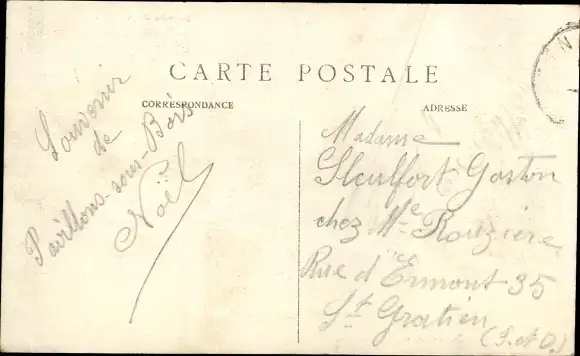 CARTE POSTALE
CORRESPONDANCE
Souvenir
de
Pavillons-sous-Bois
Noël
ADRESSE
Madame
Gaston
chez Me Rouziere
Rue d'Ermont 35
St Gratien
(S. et O.)